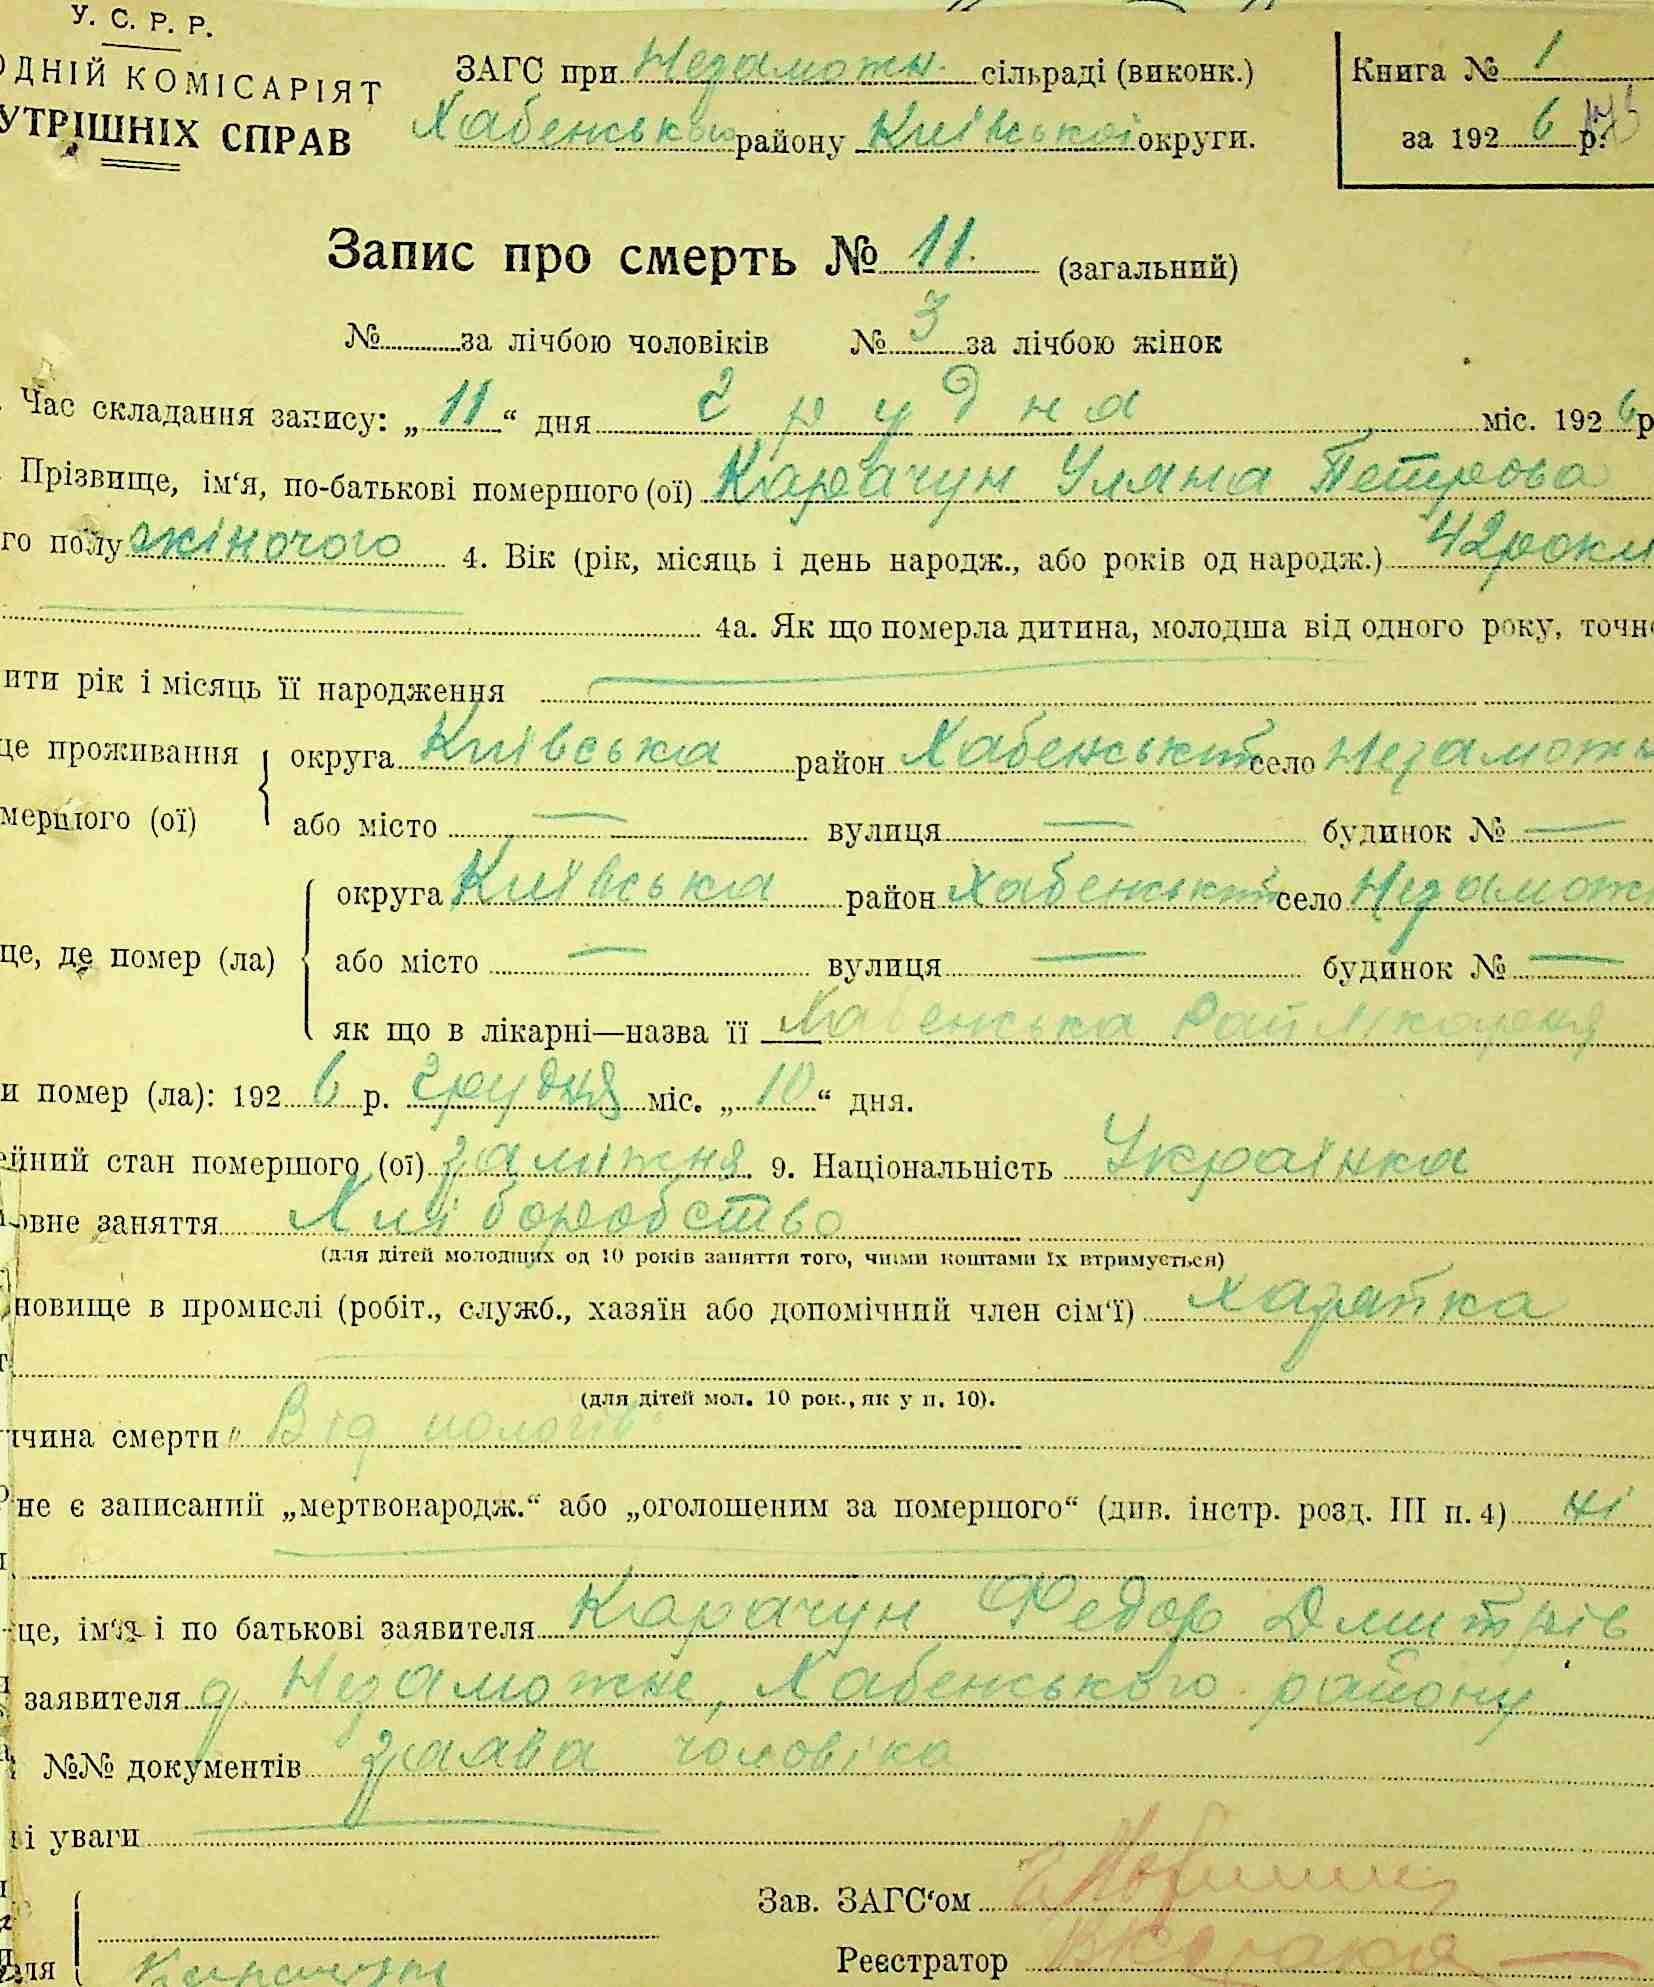 У. С. Р. Р.
ОДНІЙ КОМІСАРІЯТ
УТРІШНІХ СПРАВ
ЗАГС при Недаможн. сільраді (виконк.)
Хабенського району Київської округи.
Книга № 1
за 192 6 р.
Запис про смерть № 11. (загальний)
№ за лічбою чоловіків № 3 за лічбою жінок
Час складання запису: „ 11 “ дня грудня міс. 192 6 р
Прізвище, ім‘я, по-батькові помершого (ої) Карачун Уляна Петрова
го полу жіночого 4. Вік (рік, місяць і день народж., або років од народж.) 42 роки
4а. Як що померла дитина, молодша від одного року, точн
ити рік і місяць її народження
це проживання округа Київська район Хабенський село Недаможн
мершого (ої) або місто — вулиця — будинок № —
округа Київська район Хабенський село Недамож
це, де помер (ла) або місто — вулиця — будинок № —
як що в лікарні—назва її Хабенська Райлікарня
и помер (ла): 192 6 р. грудня міс. „ 10 “ дня.
ейний стан помершого (ої) заміжня 9. Національність Українка
овне заняття Хліборобство
(для дітей молодших од 10 років заняття того, чиїми коштами їх втримується)
новище в промислі (робіт., служб., хазяїн або допомічний член сім‘ї) хазяйка
(для дітей мол. 10 рок., як у п. 10).
ичина смерти Від пологів
не є записаний „мертвонародж.“ або „оголошеним за помершого“ (див. інстр. розд. III п. 4) ні
це, ім‘я і по батькові заявителя Карачун Федор Дмитрів
заявителя д. Недаможне, Хабенського району
№№ документів заява чоловіка
і уваги
Зав. ЗАГС‘ом
Реєстратор
ля Карачун